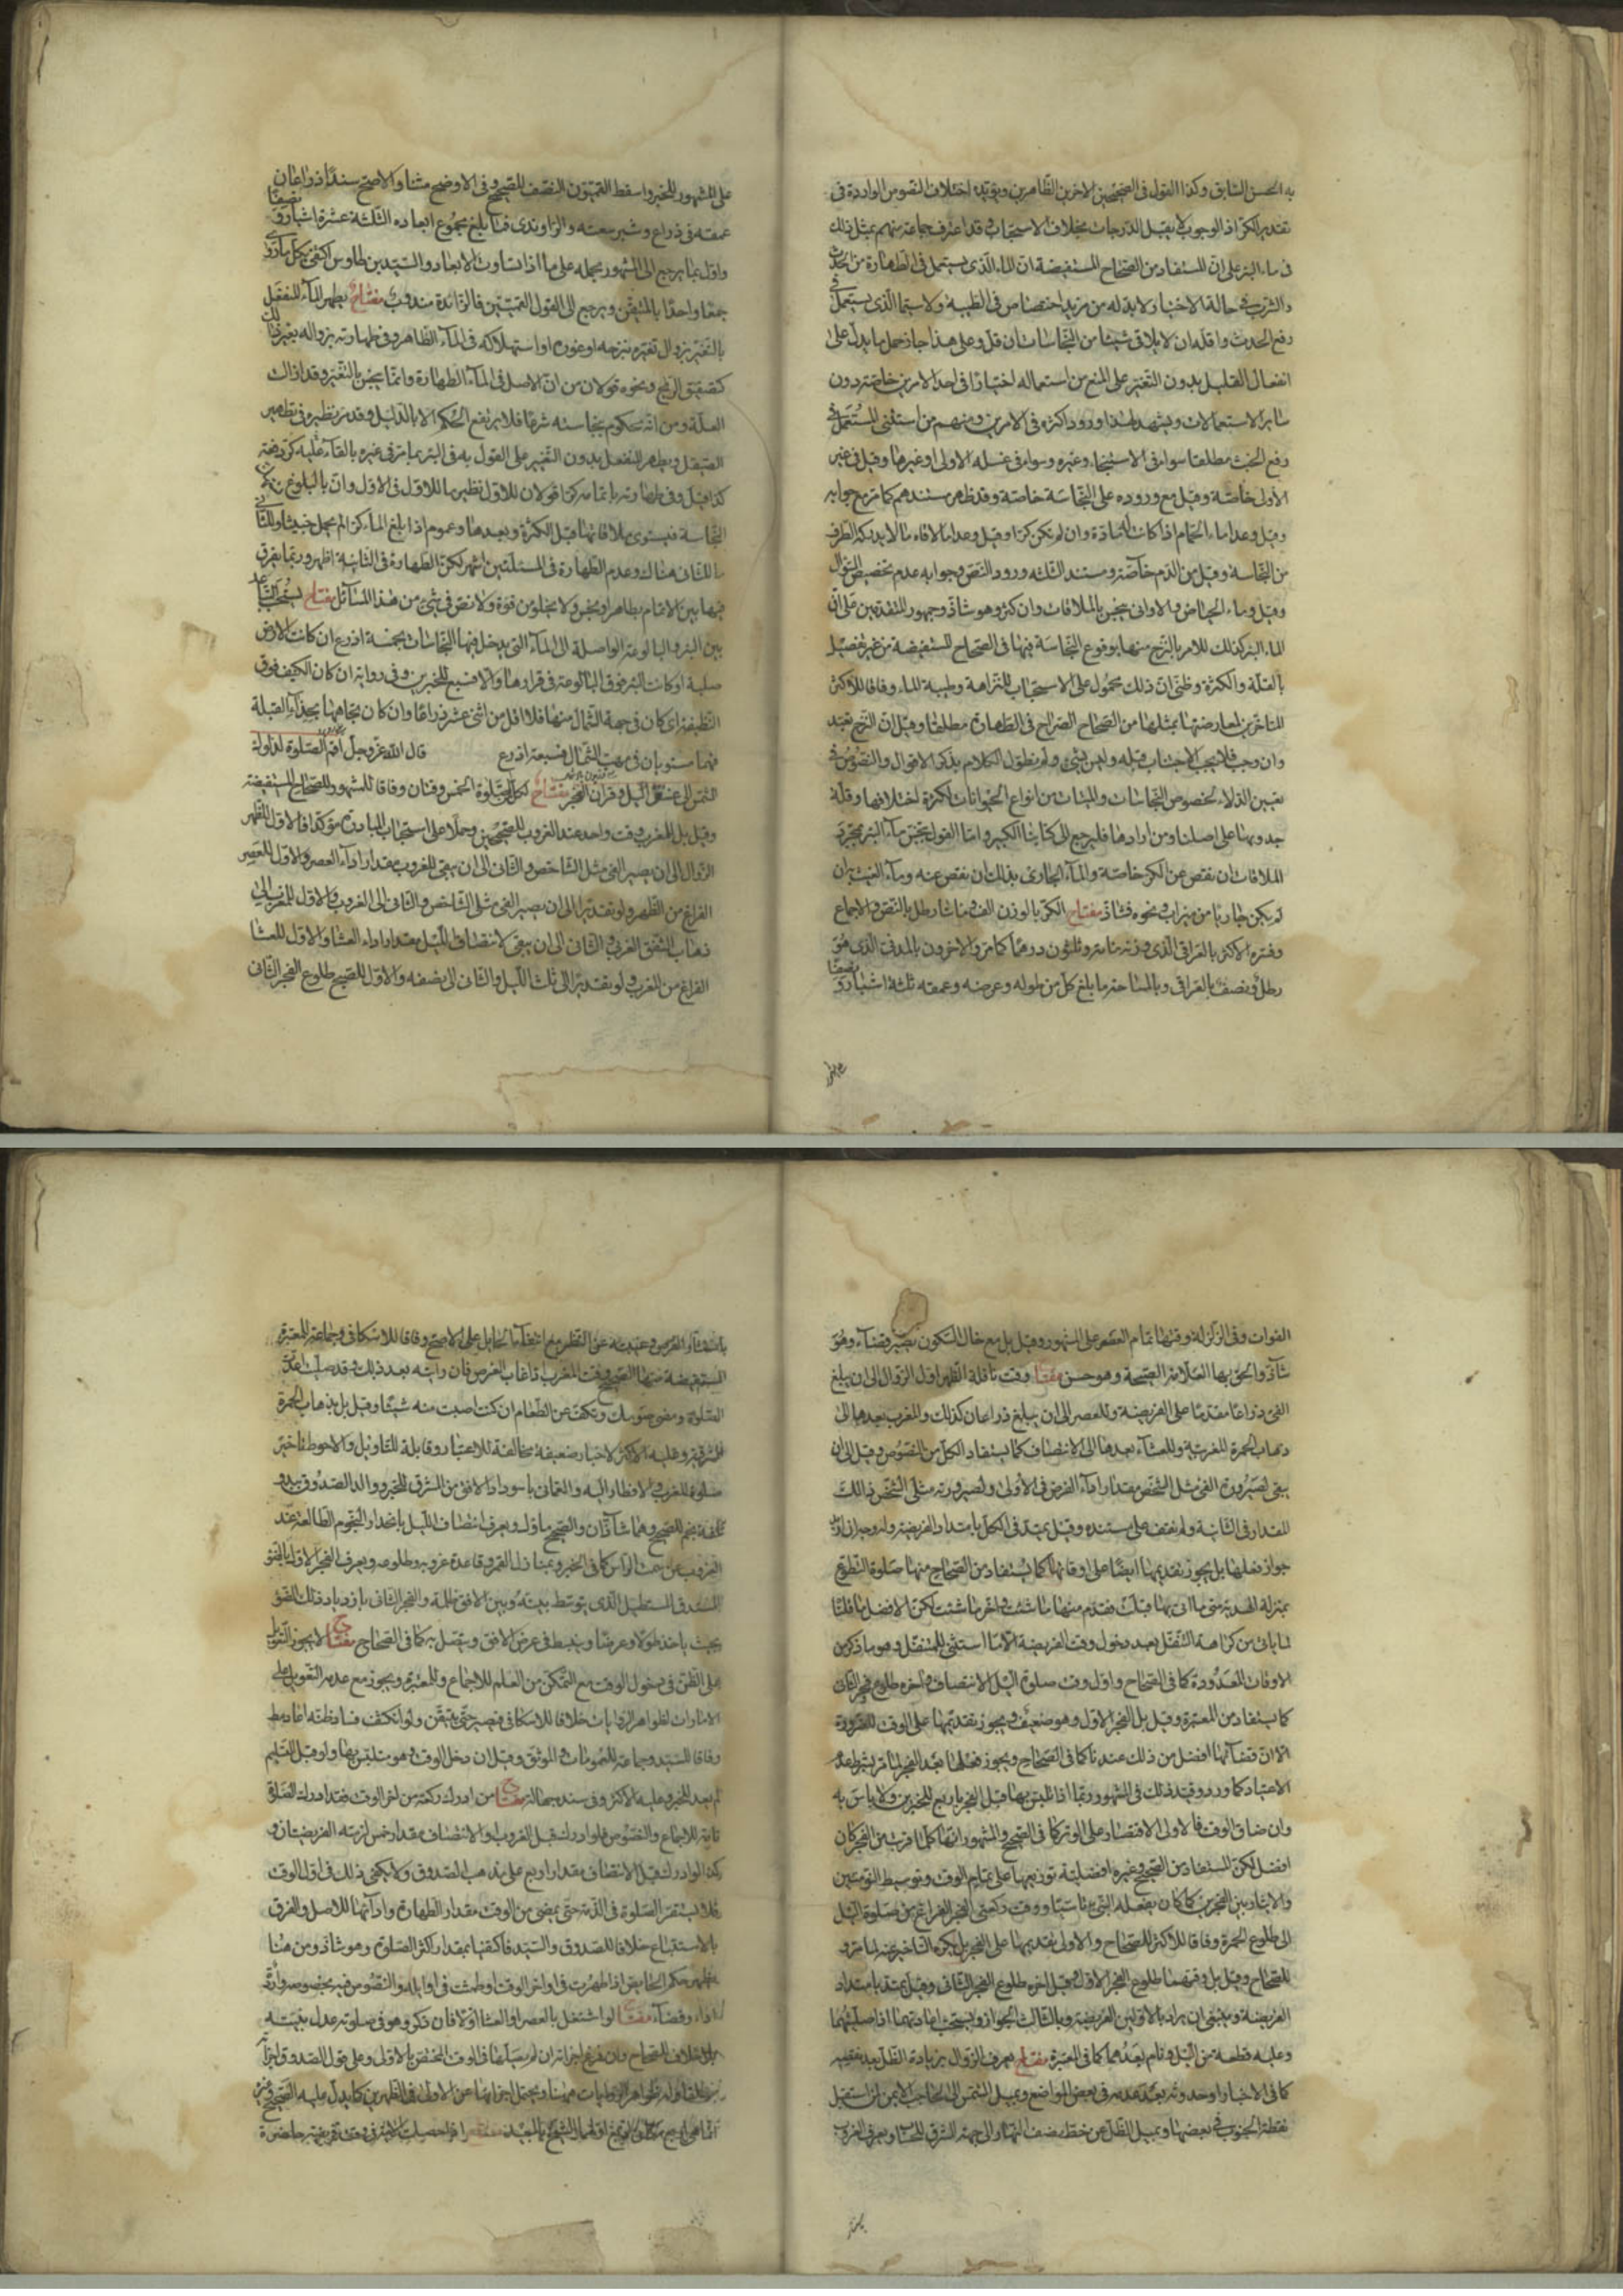 به الحسن السابق وكذا القول في الصحيحين الاخرين الظاهرين ويؤيده اختلاف النصوص الواردة في
تقدير الكر اذ الوجوب لا يقبل الدرجات بخلاف الاستحباب وقد اعترف جماعة منهم بمثل ذلك
في ماء البئر على ان المستفاد من الصحاح المستفيضة ان الماء الذي يستعمل في الطهارة من الحدث
والشرب في حالة الاختيار لا بد له من مزيد اختصاص في الطيبة ولا سيما الذي يستعمل في
رفع الحدث واقله ان لا يلاقي شيئا من النجاسات ان قل وعلى هذا جاز حمل ما يدل على
انفعال القليل بدون التغير على المنع من استعماله اختيارا في احد الامرين خاصة دون
ساير الاستعمالات ويشهد لهذا ورود اكثره في الامرين ومنهم من استثنى المستعمل في
رفع الخبث مطلقا سواء في الاستنجاء وغيره وسواء في غسله الاولى او غيرها وقيل في غير
الاولى خاصة وقيل مع وروده على النجاسة خاصة وقد ظهر مستندهم كما مر مع جوابه
وقيل وعدا ماء الحمام اذا كانت له مادة وان لم تكن كرا وقيل وعدا ما لاقاه ما لا يدركه الطرف
من النجاسة وقيل من الدم خاصة ومستند الثلثة ورود النص وجوابه عدم تخصيص السؤال
وقيل وماء الحياض والاواني ينجس بالملاقات وان كثر وهو شاذ وجمهور المتقدمين على ان
الماء البئر كذلك للامر بالنزح منها بوقوع النجاسة فيها في الصحاح المستفيضة من غير تفصيل
بالقلة والكثرة وظني ان ذلك محمول على الاستحباب للنزاهة وطيبة الماء وفاقا للاكثر
المتاخرين لمعارضتها بمثلها من الصحاح الصراح في الطهارة مطلقا وقيل ان النزح تعبد
وان وجب فلا يجب الاجتناب قبله وليس بشيء ولم نطول الكلام بذكر الاقوال والنصوص في
تعيين الدلاء لخصوص النجاسات والميتات من انواع الحيوانات لكثرة اختلافها وقلة
جدويها على اصلنا ومن ارادها فليرجع الى كتابنا الكبير واما القول بنجس ماء البئر بمجرد
الملاقات ان نقص عن الكر خاصة والماء الجاري بذلك ان نقص عنه وماء الغيث ان
لم يكن جاريا من ميزاب ونحوه فشاذ مفتاح الكر بالوزن الف ومائتا رطل بالنص والاجماع
وفسره الاكثر بالعراقي الذي وزنه مائة وثلثون درهما كما مر والاخرون بالمدني الذي هو
رطل ونصف بالعراقي وبالمساحة ما بلغ كل من طوله وعرضه وعمقه ثلثة اشبار ونصفا
على المشهور للخبر واسقط القميون النصف للصحيح وفي الاوضح متنا والاصح سندا ذراعان
عمقه في ذراع وشبر سعته والراوندي فما بلغ مجموع ابعاده الثلثة عشرة اشبار ونصفا
واول بما يرجع الى المشهور بحمله على ما اذا تساوت الابعاد والسيد بن طاوس اكتفى بكل ما روي
جمعا واخذا بالمتيقن ويرجع الى القول القميين فالزائدة مندوب مفتاح يطهر الماء المنفعل
بالتغير بزوال تغيره بنزحه او غوره او استهلاكه في الماء الطاهر وفي طهارته بزواله بغير ذلك
كتصفيق الريح ونحوه قولان من ان الاصل في الماء الطهارة وانما ينجس بالتغير وقد زالت
العلة ومن انه محكوم بنجاسته شرعا فلا يرتفع الحكم الا بالدليل وقد مر نظيره في تطهير
الصيقل ويطهر المنفعل بدون التغير على القول به في البئر بما مر في غيره بالقاء عليه كر دفعة
كذا قيل وفي طهارته باتمامه كرا قولان للاول نظير ما للاول في الاول وان بالبلوغ
النجاسة فيستوي ملاقاتها قبل الكثرة وبعدها وعموم اذا بلغ الماء كرا لم يحمل خبثا وللثاني
ما للثاني هناك وعدم الطهارة في المسئلتين اشهر لكن الطهارة في الثانية اظهر وربما يفرق
فيها بين الاتمام بطاهر او نجس ولا يخلو من قوة ولا نص في شيء من هذه المسائل مفتاح يستحب التباعد
بين البئر والبالوعة الواصلة الى الماء التي يدخل فيها النجاسات بخمسة اذرع ان كانت الارض
صلبة او كانت البئر فوق البالوعة في قرارها والا فسبع للخبرين وفي رواية ان كان الكنيف فوق
النظيفة اي كان في جهة الشمال منها فلا اقل من اثني عشر ذراعا وان كان تجاهها بحذاء القبلة
فهما مستويان في مهب الشمال فسبعة اذرع قال الله عز وجل اقم الصلوة لدلوك
الشمس الى غسق الليل وقران الفجر مفتاح لكل الصلوة الخمس وقتان وفاقا للمشهور للصحاح المستفيضة
وقيل بل المغرب وقت واحد عند الغروب للصحيحين وحملا على استحباب المبادرة مؤكدا فالاول للظهر
الزوال الى ان يصير الفيء مثل الشاخص والثاني الى ان يبقى للغروب مقدار اداء العصر والاول للعصر
الفراغ من الظهر ولو تقديرا الى ان يصير الفيء مثلي الشاخص والثاني الى الغروب والاول للمغرب الى
ذهاب الشفق الغربي والثاني الى ان يبقى لانتصاف الليل مقدار اداء العشا والاول للعشا
الفراغ من المغرب ولو تقديرا الى ثلث الليل والثاني الى نصفه والاول للصبح طلوع الفجر الثاني
الفوات وفي الزلزلة وقتها تمام العمر على المشهور وقيل بل مع حال السكون يصير قضاء وهو
شاذ والحق بها العلامة الصيحة وهو حسن مفتاح وقت نافلة الظهر اول الزوال الى ان يبلغ
الفيء ذراعا مقدما على الفريضة وللعصر الى ان يبلغ ذراعان كذلك والمغرب بعدها الى
ذهاب الحمرة المغربية وللعشاء بعدها الى الانتصاف كما يستفاد الكل من النصوص وقيل الى ان
يبقى لصيرورة الفيء مثل الشخص مقدار اداء الفرض في الاولى ولصيرورته مثلي الشخص ذلك
المقدار في الثانية ولم نقف على مستنده وقيل يمتد في الكل بامتداد الفريضة وله وجه
جواز فعلها بل يجوز تقديمها ايضا على اوقاتها كما يستفاد من الصحاح منها صلوة التطوع
بمنزلة الهدية متى ما اتى بها قبلت فقدم منها ما شئت واخر ما شئت لكن الافضل
لما ياتي من كراهة التنفل بعد دخول وقت الفريضة الا ما استثني للمتنفل وهو ما ذكر من
الاوقات المعدودة كما في الصحاح واول وقت صلوة الليل الانتصاف واخره طلوع فجر الثاني
كما يستفاد من المعتبرة وقيل بل الفجر الاول وهو ضعيف ويجوز تقديمها على الوقت للضرورة
الا ان قضائها افضل من ذلك عندنا كما في الصحاح ويجوز فعلها بعد الفجر لما مر بشرط عدم
الاعتياد كما ورد وقيد ذلك في المشهور وبما اذا تلبس بها قبل الفجر باربع للخبرين ولا باس به
وان ضاق الوقت فالاولى الاقتصار على الوتر كما في الصحيح والمشهور انها كلما قربت من الفجر كان
افضل لكن المستفاد من الصحيح وغيره افضلية توزيعها على تمام الوقت وتوسيط النومتين
والايتار بين الفجرين كما كان يفعله النبي ووقت ركعتي الفجر الفراغ من صلوة الليل
الى طلوع الحمرة وفاقا للاكثر للصحاح والاولى تقديمها على الفجر بل يكره التاخير عنه لما مر
للصحاح وقيل بل وقتهما طلوع الفجر الاول وقيل اخره طلوع الفجر الثاني وقيل يمتد بامتداد
الفريضة وينبغي ان يراد بالاولين الفضيلة وبالثالث الجواز ويستحب اعادتهما اذا صليتهما
وعليه قطعة من الليل ونام بعدهما كما في المعتبرة مفتاح يعرف الزوال بزيادة الظل بعد نقصه
كما في الاخبار او حدوثه بعد عدمه في بعض المواضع وبميل الشمس الى الحاجب الايمن لمن استقبل
نقطة الجنوب في بعضها وبميل الظل عن خط نصف النهار الى جهة المشرق للحس ويعرف الغروب
المستفيضة منها الصحيح وقت المغرب اذا غاب القرص فان رايته بعد ذلك وقد صليت اعدت
الصلوة ومضى صومك وتكف عن الطعام ان كنت اصبت منه شيئا وقيل بل بذهاب الحمرة
المشرقية وعليه الاكثر لاخبار ضعيفة مخالفة للاعتبار وقابلة للتاويل والاحوط تاخير
صلوة المغرب والافطار اليه والعماني باسوداد الافق من المشرق للخبر ووالد الصدوق ببدو
ثلثة انجم للصحيح وهما شاذان والصحيح ماول ويعرف انتصاف الليل بانحدار النجوم الطالعة عند
الغروب عن سمت الراس كما في الخبر وبمنازل القمر وقاعدة غروبه وطلوعه ويعرف الفجر الاول بالضوء
المستدق المستطيل الذي يتوسط بينه وبين الافق ظلمة والفجر الثاني بازدياد ذلك الضوء
بحيث ياخذ طولا وعرضا وينبسط في عرض الافق ويتصل به كما في الصحاح مفتاح لا يجوز التعويل
على الظن في دخول الوقت مع التمكن من العلم للاجماع وللمعتبرة ويجوز مع عدمه التعويل على
الامارات لظواهر الروايات خلافا للاسكافي فيصبر حتى يتيقن ولو انكشف فساد ظنه اعاد مط
وفاقا للسيد وجماعة للعمومات والموثق وقيل ان دخل الوقت وهو متلبس بها ولو قبل التسليم
لم يعد للخبر وعليه الاكثر وفي سنده جهالة مفتاح من ادرك ركعة من اخر الوقت فقد ادرك الصلوة
تامة للاجماع والنصوص فلو ادرك قبل الغروب او الانتصاف مقدار خمس لزمته الفريضتان و
كذا لو ادرك قبل الانتصاف مقدار اربع على مذهب الصدوق ولا يكفي ذلك في اول الوقت
فلا يستقر الصلوة في الذمة حتى يمضي من الوقت مقدار الطهارة وادائها للاصل والفرق
بالاستتباع خلافا للصدوق والسيد فاكتفيا بمقدار اكثر الصلوة وهو شاذ ومن هنا
يظهر حكم الحايض اذا طهرت في اواخر الوقت او طمثت في اوايله والنصوص فيه بخصوصه واردة
اداء وقضاء مفتاح لو اشتغل بالعصر او العشا اولا فان ذكر وهو في صلوته عدل بنيته